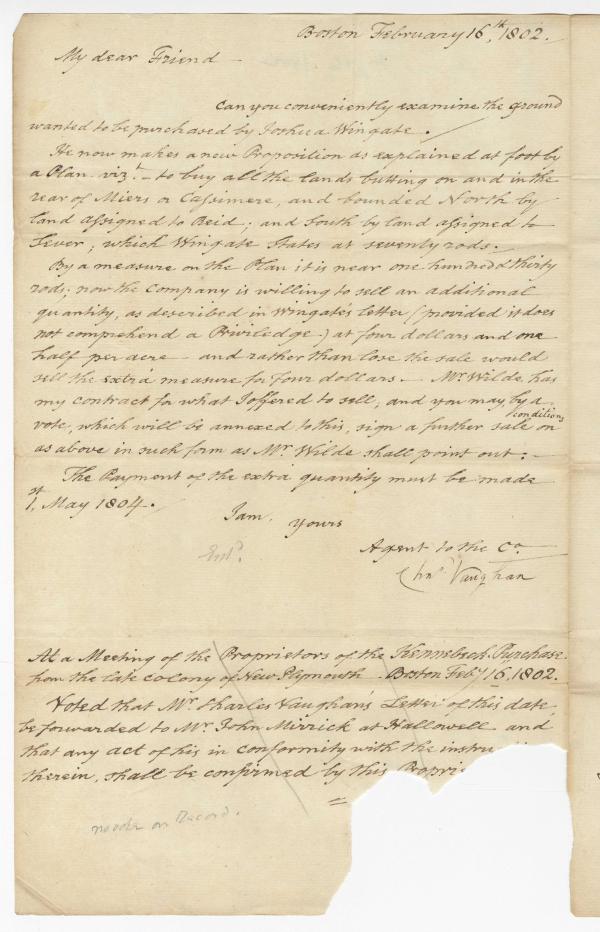 Boston February 16th, 1802.
My dear Friend —
Can you conveniently examine the ground
wanted to be purchased by Joshua Wingate.
He now makes a new Proposition as explained at foot by
a Plan vizt. — to buy all the lands butting on and in the
rear of Miers or Cassimere, and bounded North by
land assigned to Reid; and South by land assigned to
Lever; which Wingate States at seventy rods.
By a measure on the Plan it is near one hundred thirty
rods; now the Company is willing to sell an additional
quantity, as described in Wingate's letter (provided it does
not comprehend a Priviledge) at four dollars and one
half per acre — and rather than lose the sale would
sell the extra measure for four dollars. — Mr. Wilde has
my contract for what I offered to sell, and you may, by a
conditions
vote, which will be annexed to this, sign a further sale on
as above in such form as Mr. Wilde shall point out. —
The Payment of the extra quantity must be made
1st. May 1804.
I am, yours
Entd.
Agent to the Co.
Chas. Vaughan
At a Meeting of the Proprietors of the Kennebeck Purchase
from the late Colony of New Plymouth Boston Feby 16, 1802.
Voted that Mr. Charles Vaughan's Letter of this date
be forwarded to Mr. John Mirrick at Hallowell and
that any act of his in conformity with the instru
therein, shall be confirmed by this Proprie
on Record.